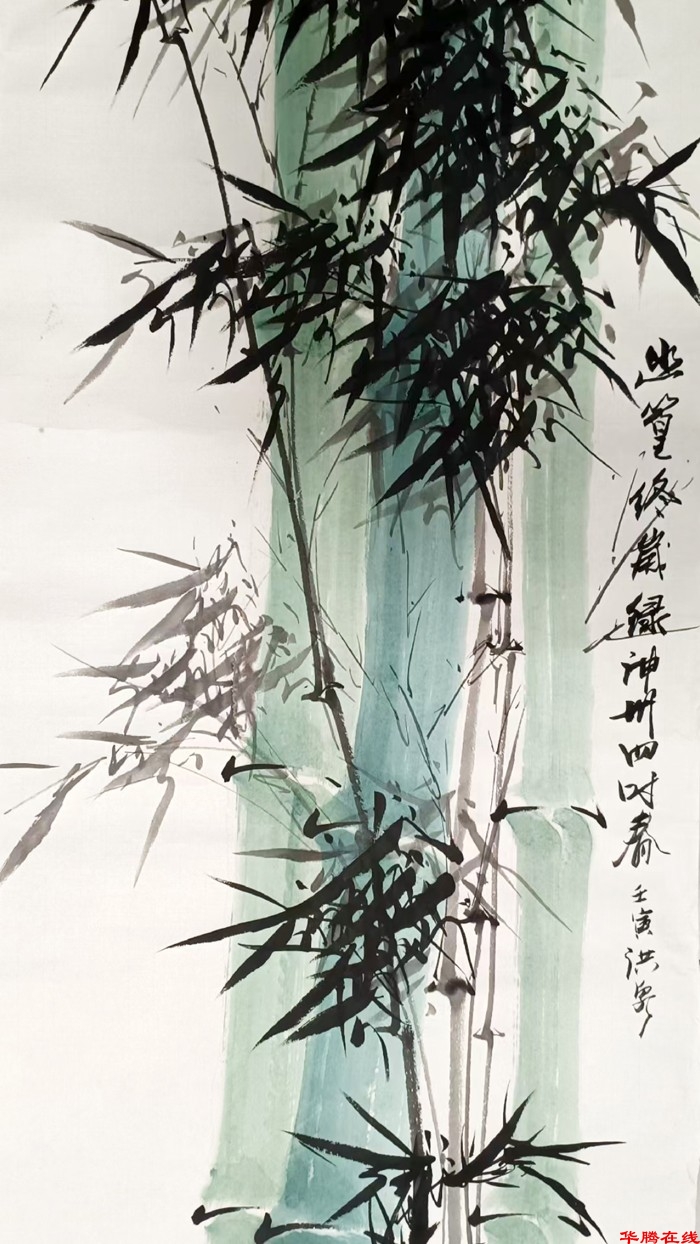 幽篁终岁绿神州四时春
壬寅洪泉
华腾在线